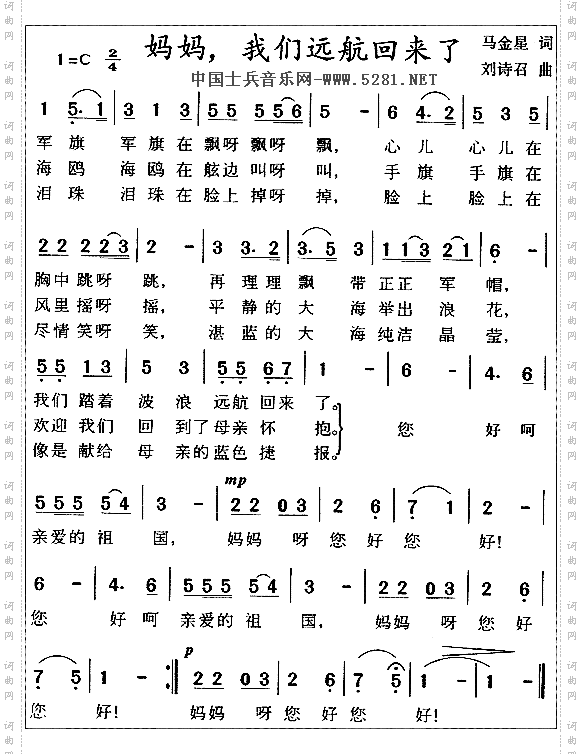 1=C 2/4
妈妈，我们远航回来了
马金星 词
刘诗召 曲
中国士兵音乐网-www.5281.NET
1 5·1 | 3 1 3 | 5 5 5 5 6 | 5 - | 6 4·2 | 5 3 5 |
军旗 军旗在飘呀飘呀飘， 心儿 心儿在
海鸥 海鸥在舷边叫呀叫， 手旗 手旗在
泪珠 泪珠在脸上掉呀掉， 脸上 脸上在
2 2 2 2 3 | 2 - | 3 3·2 | 3·5 3 | 1 1 3 2 1 | 6 - |
胸中跳呀跳， 再理理飘带正正军帽，
风里摇呀摇， 平静的大海举出浪花，
尽情笑呀笑， 湛蓝的大海纯洁晶莹，
5 5 1 3 | 5 3 | 5 5 5 6 7 | 1 - | 6 - | 4·6 |
我们踏着波浪远航回来了。
欢迎我们回到了母亲怀抱。 您好呵
像是献给母亲的蓝色捷报。
mp
5 5 5 5 4 | 3 - | 2 2 0 3 | 2 6 | 7 1 | 2 - |
亲爱的祖国， 妈妈呀您好您好！
6 - | 4·6 | 5 5 5 5 4 | 3 - | 2 2 0 3 | 2 6 |
您好呵亲爱的祖国， 妈妈呀您好
p
7 5 | 1 - :| 2 2 0 3 | 2 6 | 7 5 | 1 - | 1 - ‖
您好！ 妈妈呀您好您好！
词曲网
词曲网
词曲网
词曲网
词曲网
词曲网
词曲网
词曲网
词曲网
词曲网